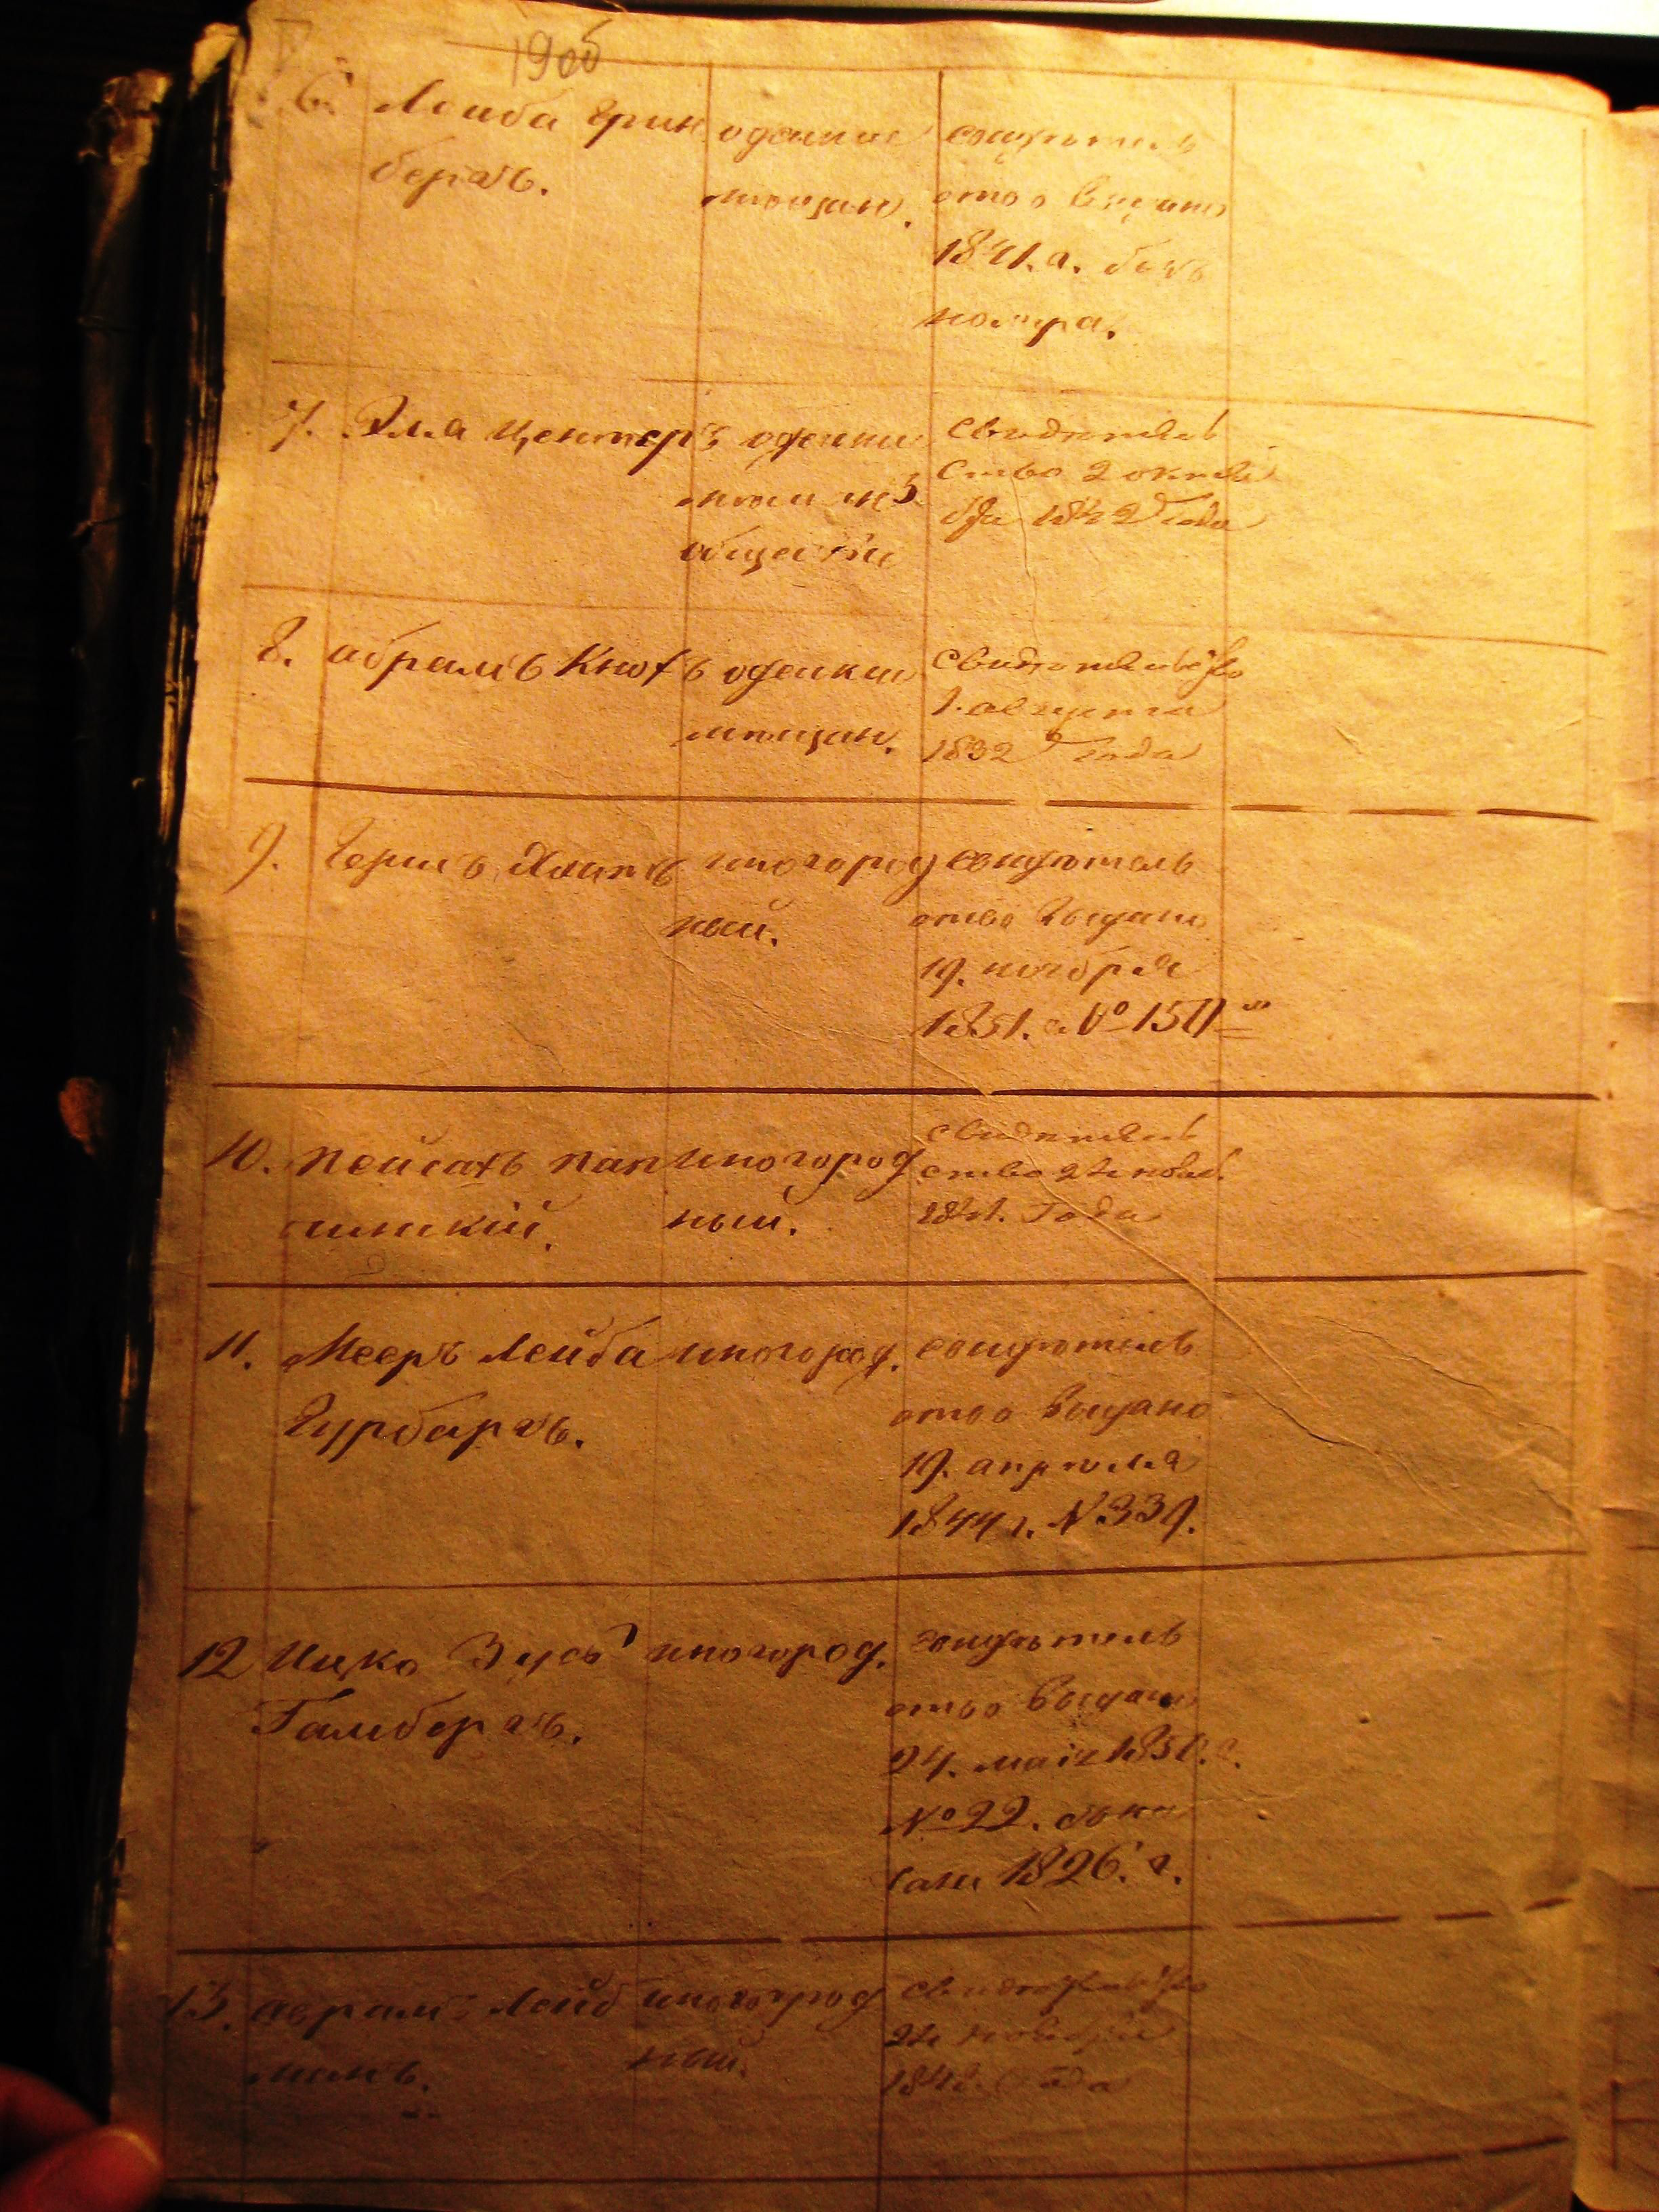 190об
6. Лейба Грин
бергъ.
одескій
мѣщан.
свидѣтель
ство выдано
1841. г. безъ
номера.
7. Эля Центеръ
одескій
мѣщанъ
свидѣтель
ство 2 октя
бря 1842 Года
8. абрамъ Кнохъ
одескій
мѣщан.
свидѣтельство
1. августа
1832 Года
9. Гершъ
иногород
ный.
свидѣтель
ство выдано
19. ноября
1851. №
10. Пейсахъ
иногород
ный.
свидѣтель
ство 24 нояб.
1841. Года
11. Мееръ Лейба
Гурбаргъ.
иногород.
свидѣтель
ство выдано
19. апрѣля
1844 г. №339.
12 Ицко Зусь
Гамбергъ.
иногород.
свидѣтель
ство выдано
24. маія
№22.
1826. г.
13. аврамъ Лейб
манъ.
иногород
ный.
свидѣтельство
24 ноября
Года